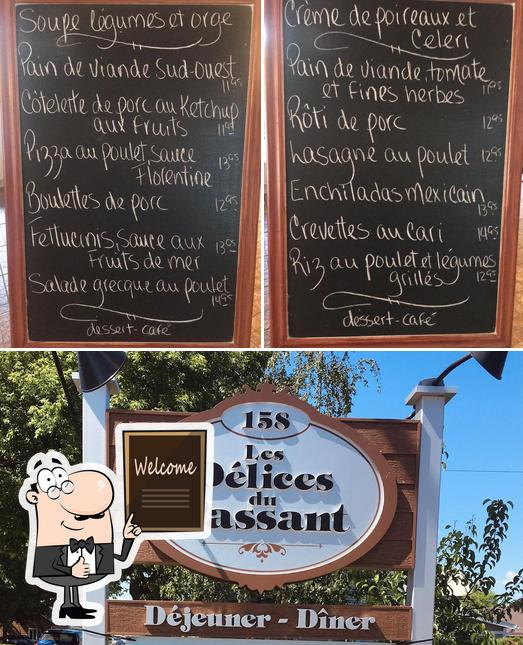 Soupe légumes et orge
Pain de viande Sud-ouest
11.95
Côtelette de porc au Ketchup
aux fruits 11.95
Pizza au poulet, sauce 13.95
Florentine
Boulettes de porc 12.95
Fettucinis, sauce aux 13.95
Fruits de mer
Salade grecque au poulet
14.95
dessert-café
Crème de poireaux et
Celeri
Pain de viande, tomate
et fines herbes 11.95
Rôti de porc 12.95
Lasagne au poulet 12.95
Enchiladas mexicain
13.95
Crevettes au cari 14.95
Riz au poulet et légumes
grillés 12.95
dessert-café
158
Les
Délices
du
assant
Welcome
Déjeuner - Dîner